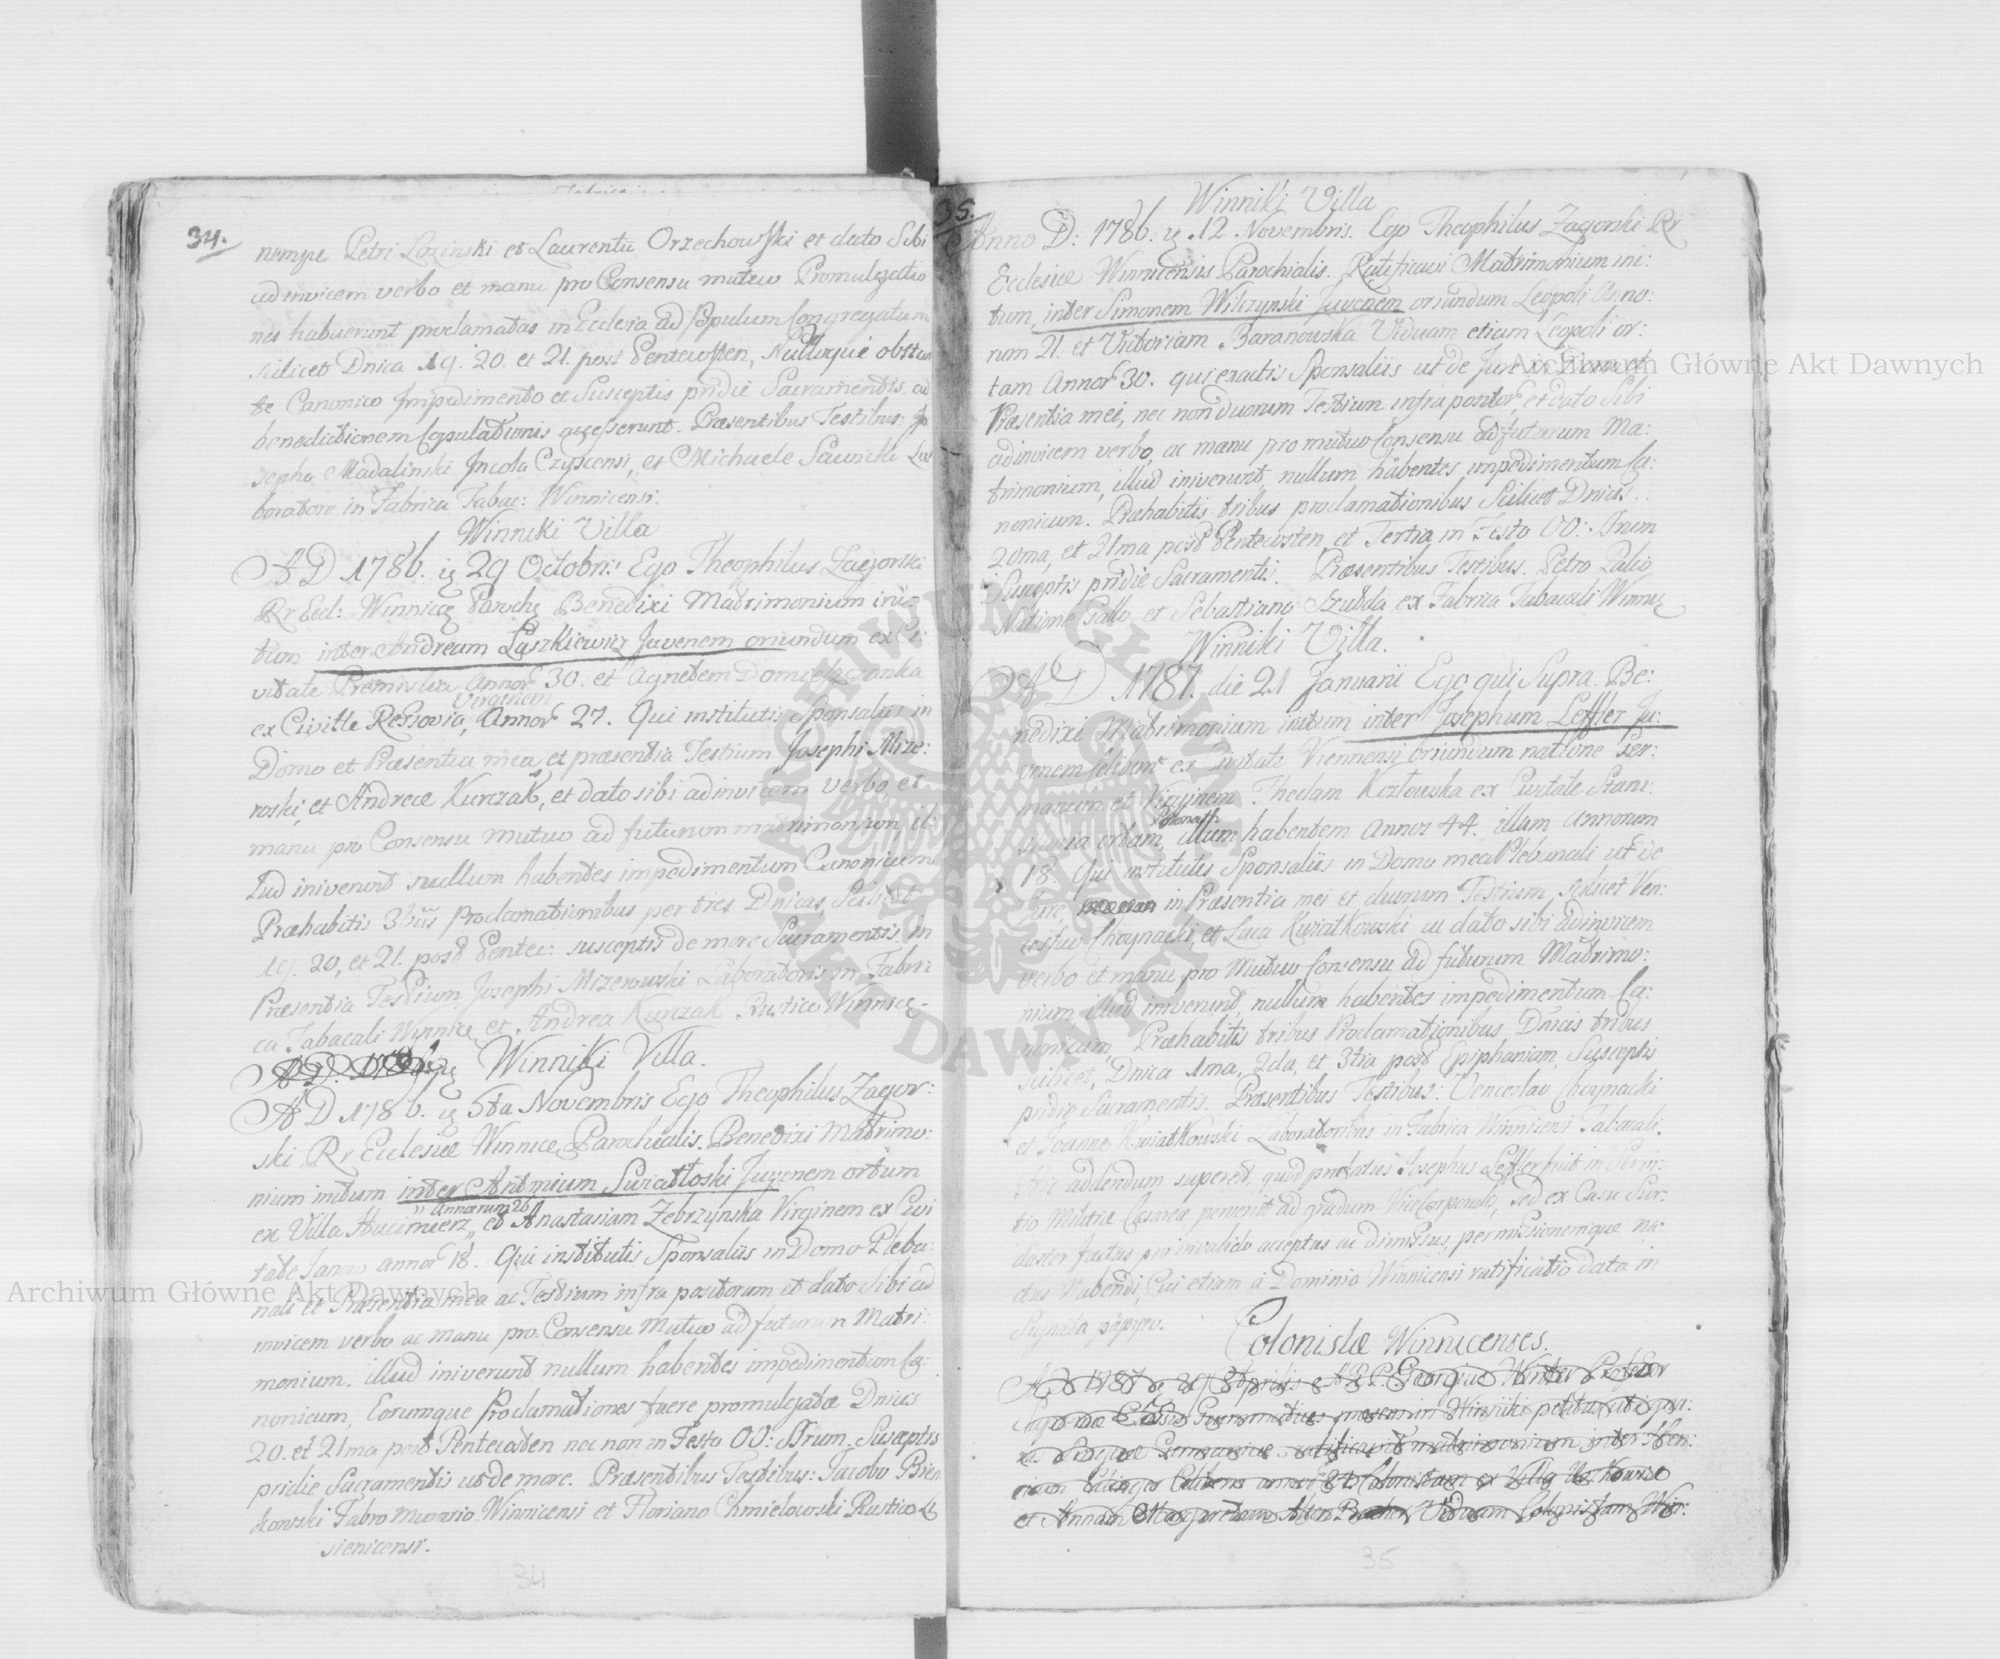 34.
nempe Petri Lozinski et Laurentii Orzechowski et dato Sibi
adinvicem verbo et manu pro Consensu mutuo Promulgatio
nes habuerunt proclamatas in Ecclesia ad Populum Congregatum
scilicet Dnica 19. 20. et 21. post Pentecosten, Nulloque obstan
te Canonico Impedimento et Susceptis pridie Sacramentis ad
benedictionem Copulationis accesserunt. Præsentibus Testibus: Jo
sepho Madalinski Incola et Michaele Sawicki La
boratore in Fabrica Tabac: Winnicensi:
Winniki Villa
AD 1786. 29 Octobris Ego Theophilus Zagorski
Rr Eccl: Winnice Paroche Benedixi Matrimonium ini:
tum inter Andream Laszkiewicz Juvenem oriundum ex Ci:
vitate Premislia Annor 30. et Agnetem
Virginem
ex Civitte Ressovia, Annor 27. Qui institutis Sponsaliis in
Domo et Præsentia mea et præsentia Testium Josephi Mize:
roski, et Andreæ Kurczak, et dato sibi adinvicem verbo et
manu pro Consensu mutuo ad futurum matrimonium il:
lud iniverunt nullum habentes impedimentum Canonicum
Præhabitis 3bus Proclamationibus per tres Dnicas, Scilicet
19. 20, et 21. post Pentec: susceptis de more Sacramentis in
Præsentia Testium Josephi Mizerowski Laboratoris in Fabri:
ca Tabacali Winnice et Andrea Kurczak Rustico Winnice.
AD. 1786
Winniki Villa.
AD 1786. 5ta Novembris Ego Theophilus Zagor:
ski Rr Ecclesiæ Winnice Parochialis. Benedixi Matrimo:
nium initum inter Antonium Swiatloski Juvenem ortum
Annorum 26
ex Villa et Anastasiam Zebrzynska Virginem ex Civi
tate Janow annor 18. Qui institutis Sponsaliis in Domo Pleba:
nali et Præsentia mea ac Testium infra positorum et dato Sibi ad
invicem verbo ac manu pro Consensu Mutuo ad futurum Matri:
monium. illud iniverunt nullum habentes impedimentum Ca:
nonicum, Eorumque Proclamationes fuere promulgatæ Dnicis
20. et 21ma post Pentecosten nec non in Festo OO: SSrum. Susceptis
pridie Sacramentis ut de more. Præsentibus Testibus: Jacobo Bien
kowski Fabro Winnicensi et Floriano Chmielowski Rustico Le
sienicensi.
34
35.
Winniki Villa
Anno D: 1786. 12 Novembris. Ego Theophilus Zagorski Rr
Ecclesiæ Winnicensis Parochialis. Ratificavi Matrimonium ini:
tum, inter Simonem Wilczynski Juvenem oriundum Leopoli Anno:
rum 21. et Victoriam Baranowska Viduam etiam Leopoli or:
tam Annor 30. qui exactis Sponsaliis ut de Jure in Domo et
Præsentia mei, nec non duorum Testium infra positor, et dato Sibi
adinvicem verbo, ac manu pro mutuo Consensu ad futurum Ma:
trimonium, illud iniverunt, nullum habentes impedimentum Ca:
nonicum. Præhabitis tribus proclamationibus Scilicet Dnicis..
20ma, et 21ma post Pentecosten et Tertia in Festo OO: SSrum
Susceptis pridie Sacramentis. Præsentibus Testibus. Petro
Natione Gallo, et Sebastiano Szubda ex Fabrica Tabacali Winnic
Winniki Villa.
AD 1787. die 21 Januarii Ego qui Supra. Be:
nedixi Matrimonium initum inter Josephum Leffler Ju:
venem Celibem ex Civitate Viennensi Oriundum natione Ger:
manum et Virginem Theclam Kozlowska ex Civitate Stani:
Polonam
slavia ortam, illum habentem Annos 44. illam Annorum
18. Qui institutis Sponsaliis in Domo mea Plebanali ut de
Jure, in Præsentia mei et duorum Testium, scilicet Ven:
ceslao Choynacki, et Luca Kwiatkowski ac dato sibi adinvicem
verbo et manu pro Mutuo Consensu ad futurum Matrimo:
nium illud iniverunt, nullum habentes impedimentum Ca:
nonicum, Præhabitis tribus Proclamationibus Dnicis tribus
scilicet, Dnica 1ma, 2da, et 3tia post Epiphaniam, Susceptis
pridie Sacramentis. Præsentibus Testibus: Venceslao Choynacki
et Joanne Kwiatkowski Laboratoribus in Fabrica Winnicensi Tabacali.
Hic addendum superest, quod præfatus Josephus Leffler fuit in Servi:
tio Militiæ Cæsareæ pervenit ad gradum ViceCorporalis, Sed ex Casu Sur:
daster factus pro invalido acceptus ac dimissus, permissionemque na:
ctus Nubendi, Cui etiam a Dominio Winnicensi ratificatio data in
Signata papyro.
Colonistæ Winnicenses.
35
Archiwum Główne Akt Dawnych
Archiwum Główne Akt Dawnych
ARCHIWUM GŁÓWNE AKT DAWNYCH